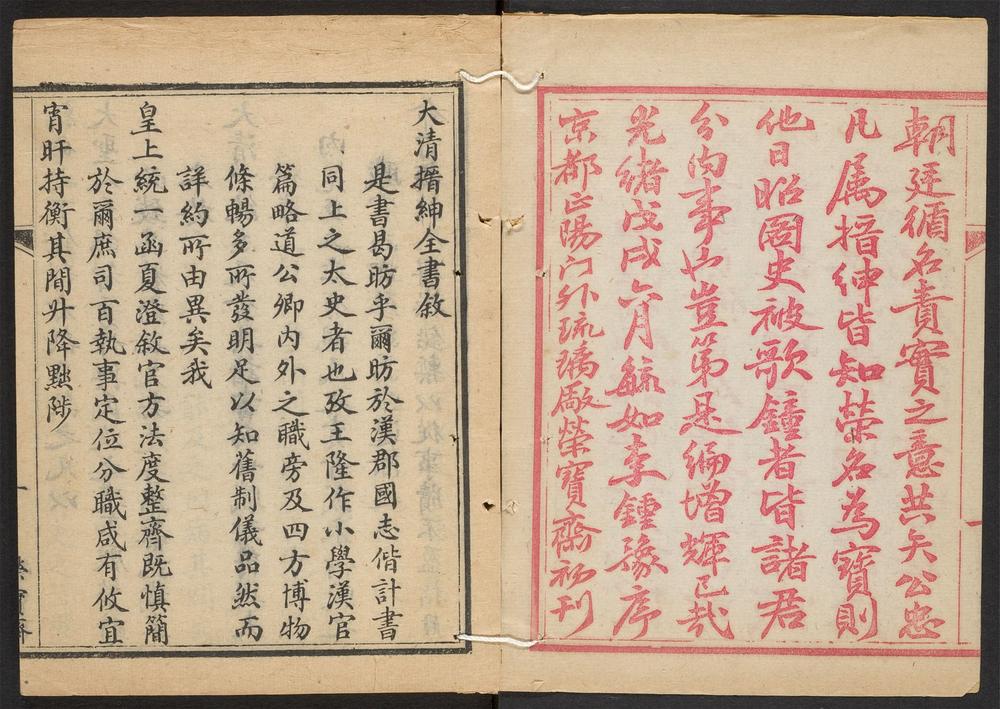 朝廷循名責實之意共矢公忠
凡属搢紳皆知榮名為寶則
他日昭國史被歌鐘者皆諸君
分內事也豈第是編增輝已哉
光緒戊戌六月毓如李鍾豫序
京都正陽門外琉璃厰榮寶齋初刊
一
大清搢紳全書敘
是書曷昉乎爾昉於漢郡國志偕計書
同上之太史者也攷王隆作小學漢官
篇略道公卿內外之職旁及四方博物
條暢多所發明足以知舊制儀品然而
詳約所由異矣我
皇上統一函夏澄敘官方法度整齊既慎簡
於爾庶司百執事定位分職咸有攸宜
宵旰持衡其間升降黜陟
一
榮寶齋